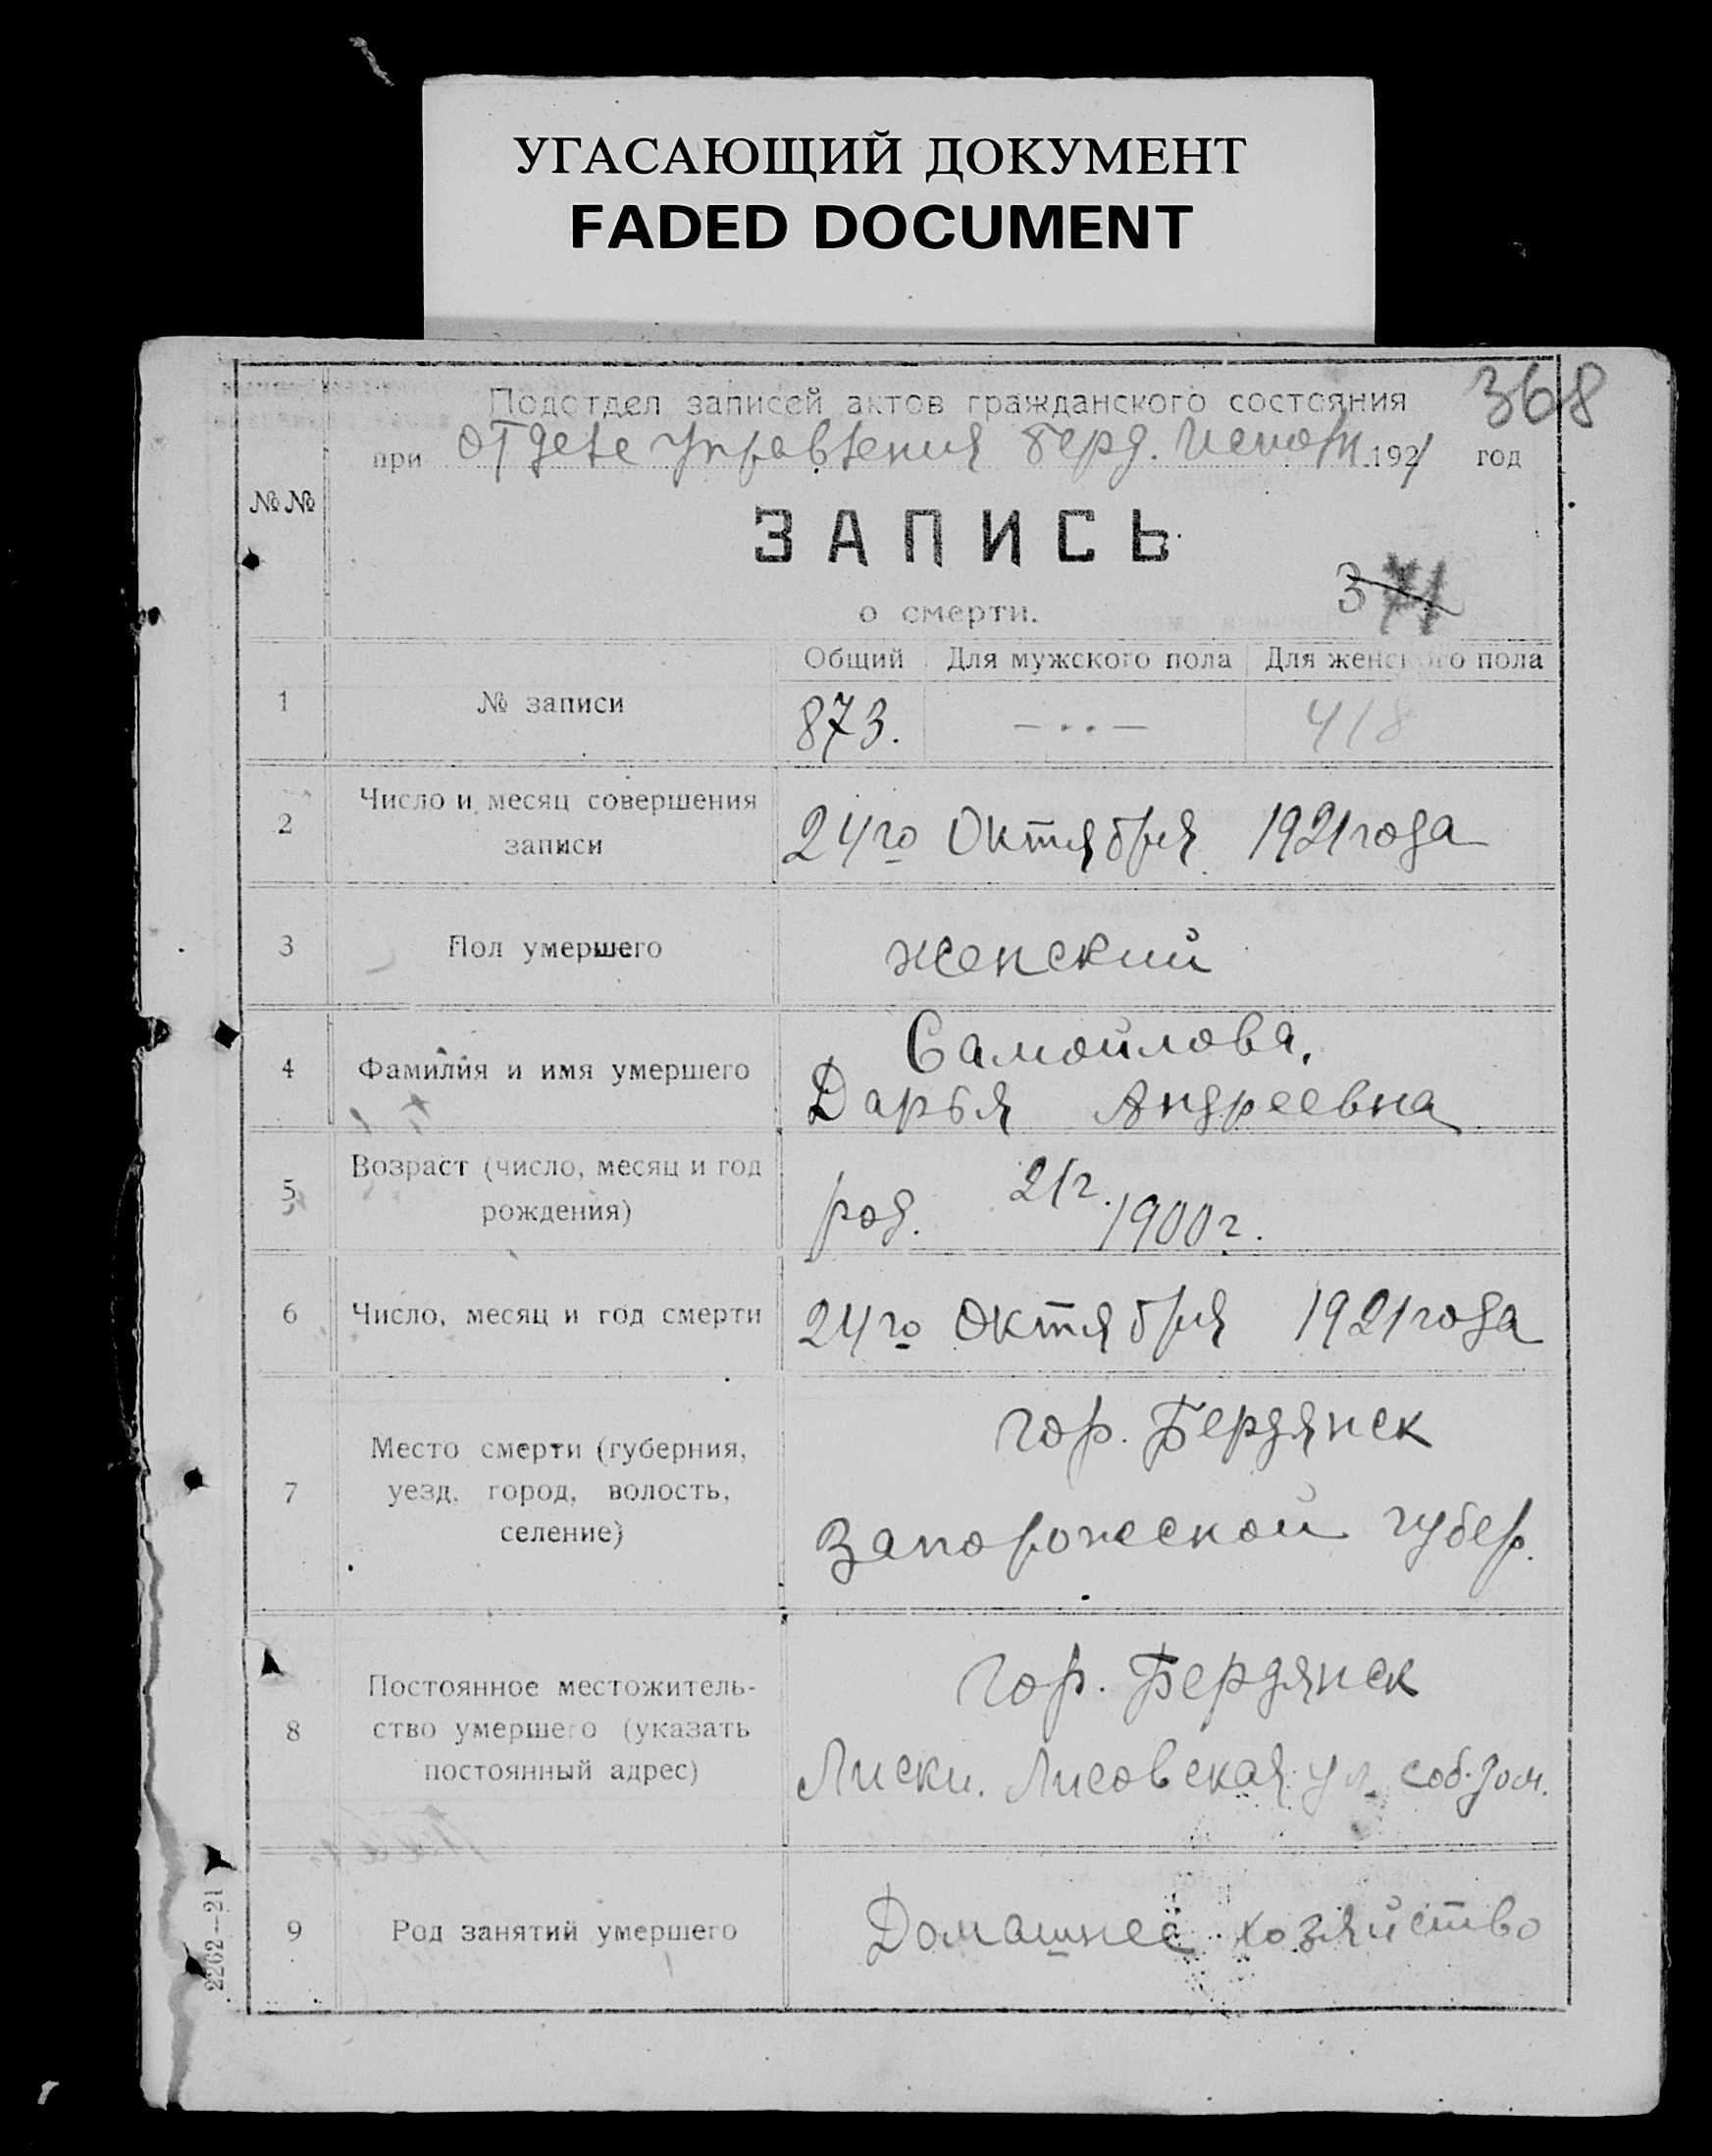 УГАСАЮЩИЙ ДОКУМЕНТ
FADED DOCUMENT
368
Подотдел записей актов гражданского состояния
при отделе управления берд. 1921 год
№ №
ЗАПИСЬ
о смерти.
Общий Для мужского пола Для женского пола
1 № записи 873. — • • — 418
2 Число и месяц совершения
записи
24го Октября 1921 года
3 Пол умершего женский
4 Фамилия и имя умершего
Самойлова,
Дарья Андреевна
5 Возраст (число, месяц и год
рождения)
21 г.
род. 1900 г.
6 Число, месяц и год смерти 24го Октября 1921 года
7 Место смерти (губерния,
уезд, город, волость,
селение)
гор. Бердянск
Запорожской губер.
8 Постоянное местожитель-
ство умершего (указать
постоянный адрес)
гор. Бердянск
Лиски. Лисовская ул. соб. дом.
9 Род занятий умершего Домашнее хозяйство
2262—21